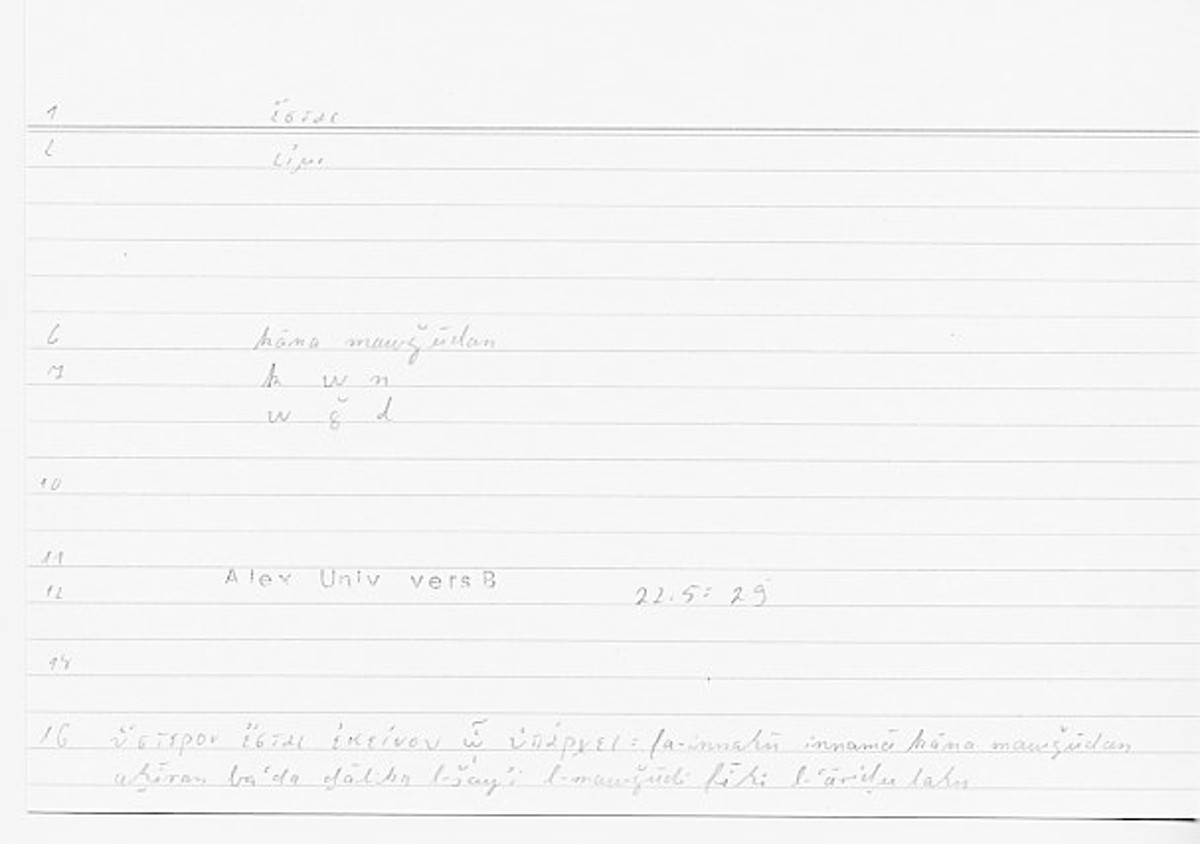 1 ἔσται
2 εἰμι
6 kāna mawǧūdan
7 k w n
w ǧ d
10
11
12 Alex Univ vers B 22.5: 29
14
16 ὕστερον ἔσται ἐκείνου ᾧ ὑπάρχει: fa-innahū innamā kāna mawǧūdan
aḫīran baʿda ḏālika l-šayʾi l-mawǧūdi fīhi l-ʿāriḍu lahu